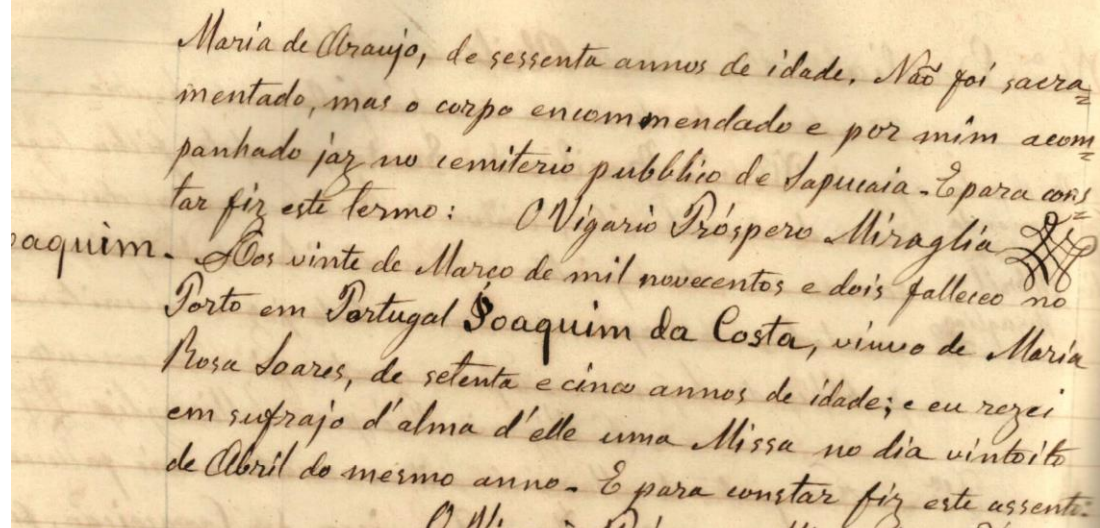 Maria de Araujo, de sessenta annos de idade. Não foi sacra=
mentado, mas o corpo encommendado e por mim acom=
panhado jaz no cemiterio pubblico de Sapucaia. E para cons=
tar fiz este termo: O Vigario Próspero Miraglia
oaquim. Aos vinte de Março de mil novecentos e dois falleceo no
Porto em Portugal Joaquim da Costa, viuvo de Maria
Rosa Soares, de setenta e cinco annos de idade; e eu rezei
em sufrajo d'alma d'elle uma Missa no dia vintoito
de Abril do mesmo anno. E para constar fiz este assento:
O